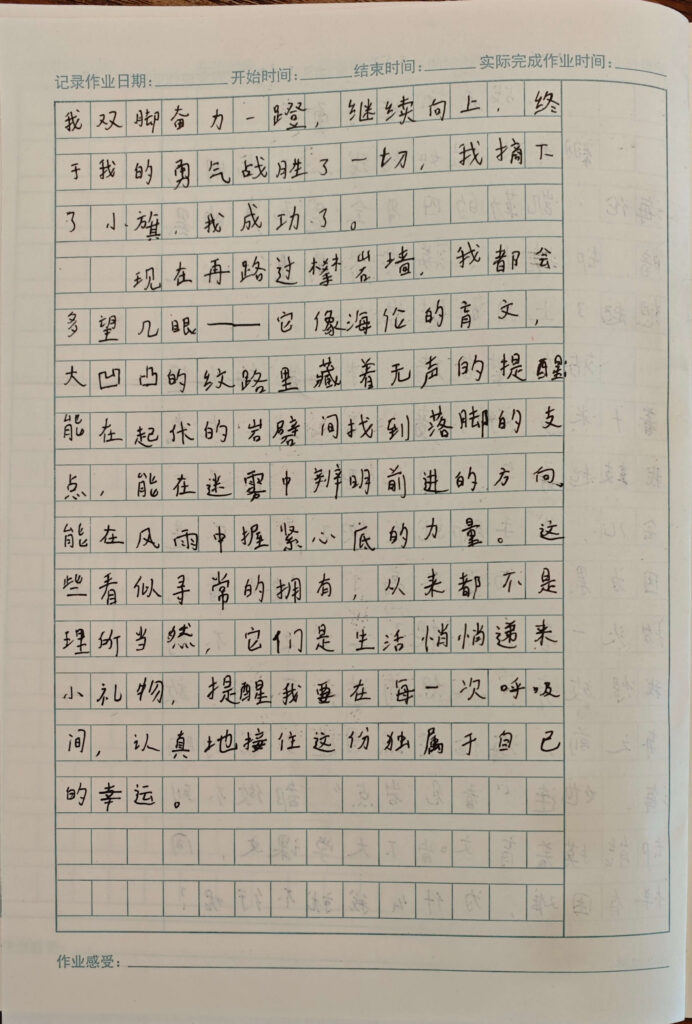 记录作业日期：
开始时间：
结束时间：
实际完成作业时间：
我双脚奋力一蹬，继续向上，终
于我的勇气战胜了一切，我摘下
了小旗，我成功了。
现在再路过攀岩墙，我都会
多望几眼——它像海伦的盲文，
大凹凸的纹路里藏着无声的提醒：
能在起伏的岩壁间找到落脚的支
点，能在迷雾中辨明前进的方向，
能在风雨中握紧心底的力量。这
些看似寻常的拥有，从来都不是
理所当然，它们是生活悄悄递来
小礼物，提醒我要在每一次呼吸
间，认真地接住这份独属于自己
的幸运。
作业感受：